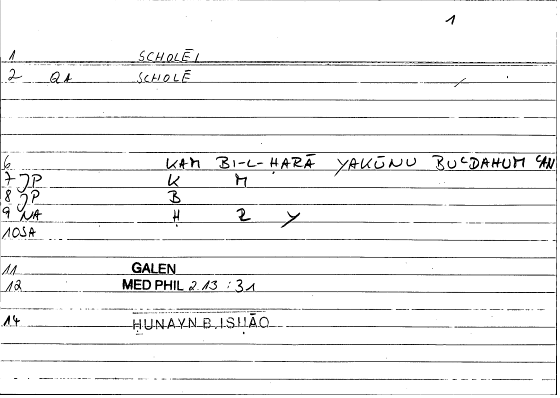 1
1 SCHOLĒI
2 QA SCHOLĒ
6 KAM BI-L-ḤARĀ YAKŪNU BUʿDAHUM ʿAN
7 JP K M
8 JP B
9 NA Ḥ R Y
10 SA
11 GALEN
12 MED PHIL 2.13 : 31
14 ḤUNAYN B. ISḤĀQ